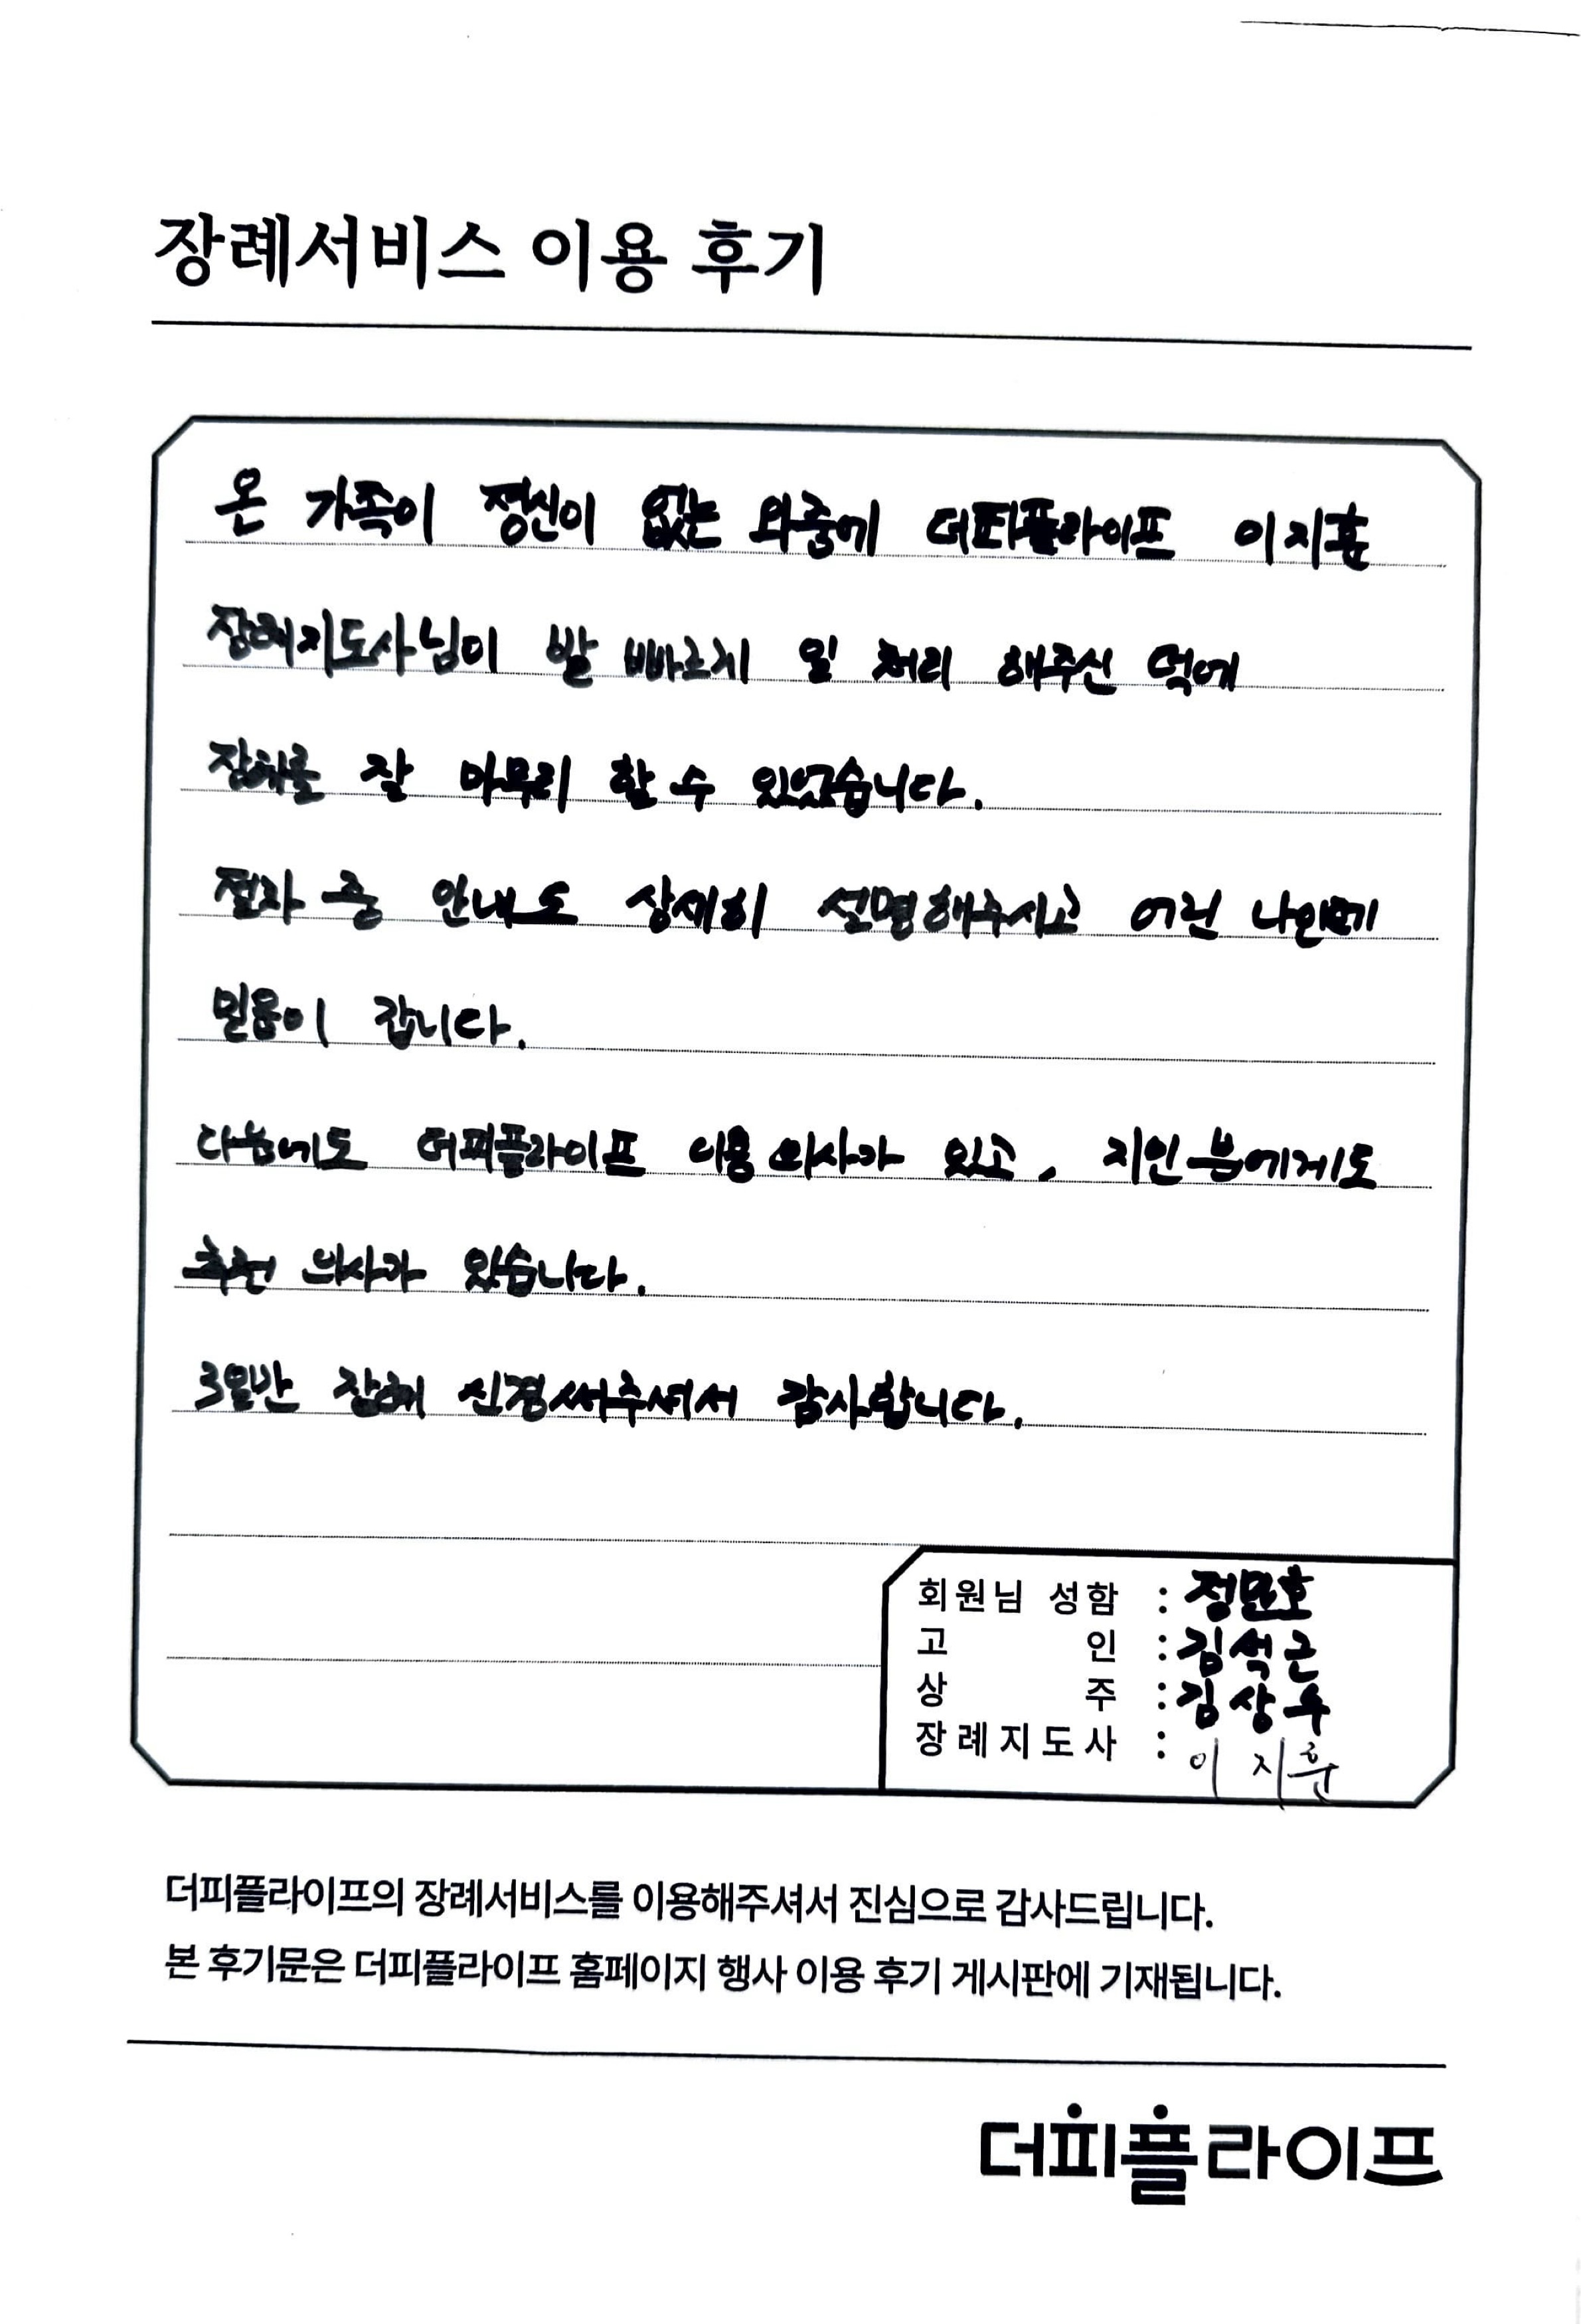 장례서비스 이용 후기
온 가족이 정신이 없는 와중에 더피플라이프 이지훈
장례지도사님이 발 빠르게 일 처리 해주신 덕에
장례를 잘 마무리 할 수 있었습니다.
절차 중 안내도 상세히 설명해주시고 어린 나이에
믿음이 갑니다.
다음에도 더피플라이프 이용 의사가 있고, 지인분에게도
추천 의사가 있습니다.
3일간 장례 신경써주셔서 감사합니다.
회원님 성함 : 정민호
고 인 : 김석근
상 주 : 김상우
장례지도사 : 이지훈
더피플라이프의 장례서비스를 이용해주셔서 진심으로 감사드립니다.
본 후기문은 더피플라이프 홈페이지 행사 이용 후기 게시판에 기재됩니다.
더피플라이프